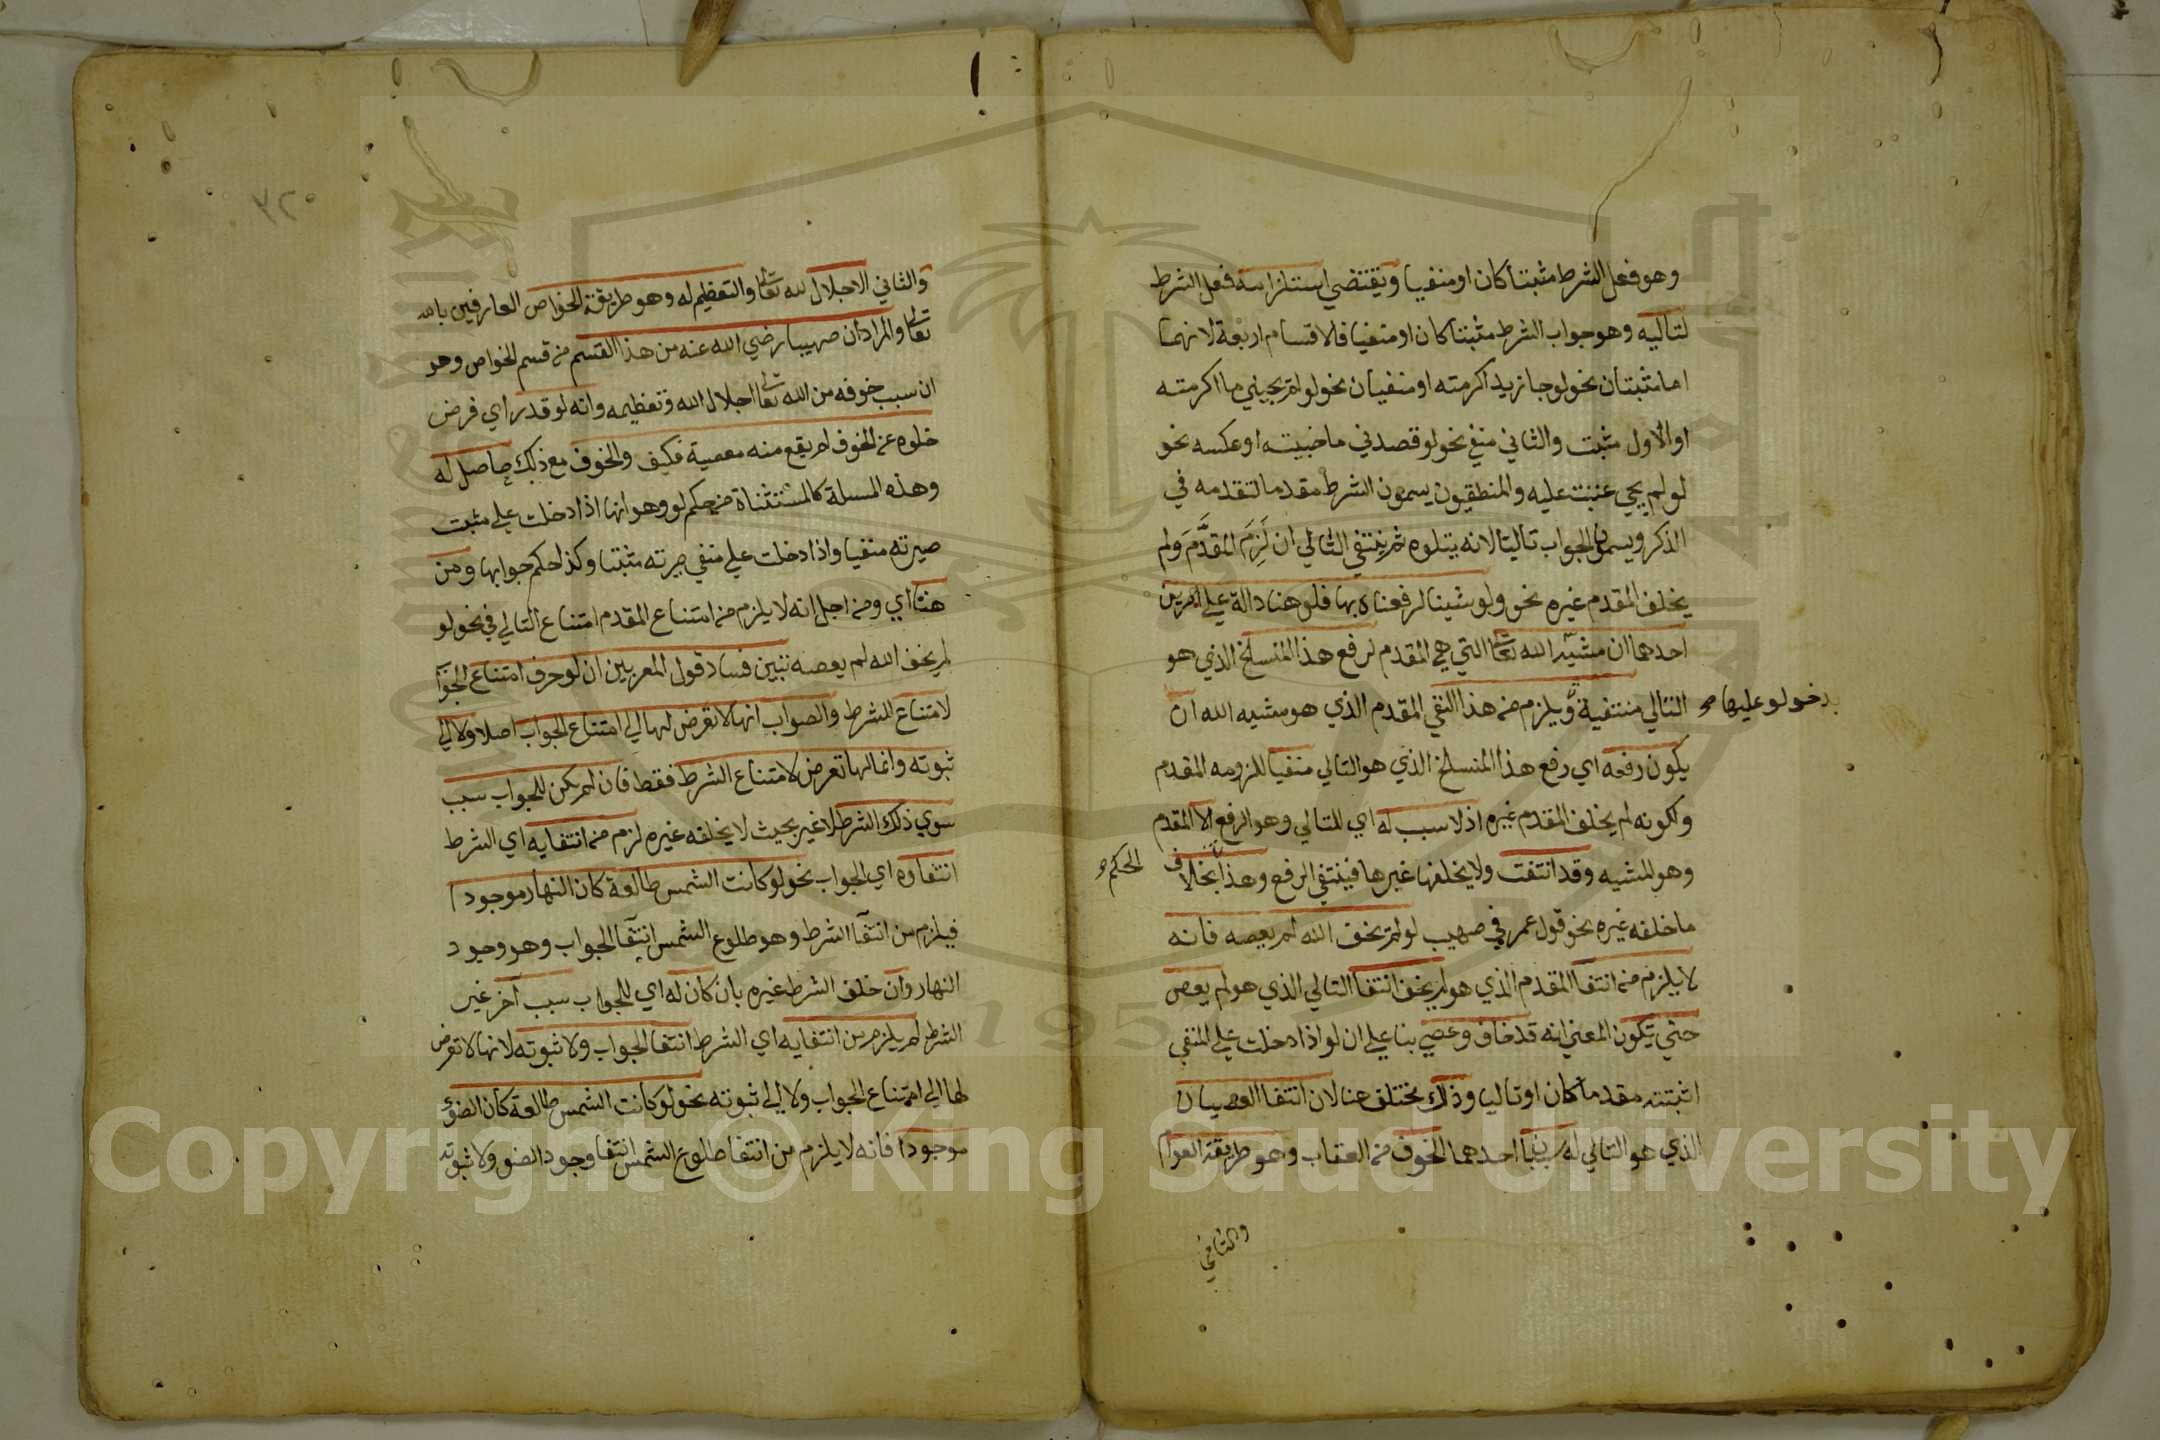 وهو فعل الشرط مثبتا كان او منفيا ويقتضي استلزامه فعل الشرط
لتاليه وهو جواب الشرط مثبتا كان او منفيا فالاقسام اربعة لانهما
اما مثبتان نحو لو جا زيد اكرمته او منفيان نحو لو لم يجيني ما اكرمته
او الاول مثبت والثاني منفي نحو لو قصدني ما خيبته او عكسه نحو
لو لم يجي عتبت عليه والمنطقيون يسمون الشرط مقدما لتقدمه في
الذكر ويسمون الجواب تاليا لانه يتلوه ثم ينتفي التالي ان لَزِمَ المقدَّمَ ولم
يخلف المقدم غيره نحو ولو شينا لرفعناه بها فلو هنا دالة علي امرين
احدهما ان مشية الله تعالى التي هي المقدم لرفع هذا المنسلخ الذي هو
التالي منتفية ويلزم من هذا النفي المقدم الذي هو مشيه الله ان
بدخول لو عليها صح
يكون رفعه اي رفع هذا المنسلخ الذي هو التالي منفيا للزومه المقدم
ولكونه لم يخلف المقدم غيره اذ لا سبب له اي للتالي وهو الرفع الا المقدم
وهو المشيه وقد انتفت ولا يخلفها غيرها فينتفي الرفع وهذا بخلاف
الحكم صح
ما خلفه غيره نحو قول عمر في صهيب لو لم يخف الله لم يعصه فانه
لا يلزم من انتفا المقدم الذي هو لم يخف انتفا التالي الذي هو لم يعص
حتي يكون المعني انه قد خاف وعصي بنا علي ان لو اذا دخلت علي المنفي
اثبتته مقدما كان او تاليا وذلك مختلف هنا لان انتفا العصيان
الذي هو التالي له سببان احدهما الخوف من العقاب وهو طريقة العوام
والثاني
٣٢٠
والثاني الاجلال لله تعالى والتعظيم له وهو طريقة الخواص العارفين بالله
تعالى والمراد ان صهيبا رضي الله عنه من هذا القسم من قسم الخواص وهو
ان سبب خوفه من الله تعالى اجلال الله وتعظيمه وانه لو قدر اي فرض
خلوه عن الخوف لم يقع منه معصية فكيف والخوف مع ذلك حاصل له
وهذه المسلة كالمستثناة من حكم لو وهو انها اذا دخلت علي مثبت
صيرته منفيا واذا دخلت علي منفي صيرته مثبتا وكذا حكم جوابها ومن
هنا اي ومن اجل انه لا يلزم من امتناع المقدم امتناع التالي في نحو لو
لم يخف الله لم يعصه تبين فساد قول المعربين ان لو حرف امتناع الجواب
لامتناع الشرط والصواب انها لا تعرض لها الي امتناع الجواب اصلا ولا الي
ثبوته وانما لها تعرض لامتناع الشرط فقط فان لم يكن للجواب سبب
سوي ذلك الشرط لا غير بحيث لا يخلفه غيره لزم من انتفايه اي الشرط
انتفاوه اي الجواب نحو لو كانت الشمس طالعة كان النهار موجودا
فيلزم من انتفا الشرط وهو طلوع الشمس انتفا الجواب وهو وجود
النهار وان خلف الشرط غيره بان كان له اي للجواب سبب آخر غير
الشرط لم يلزم من انتفايه اي الشرط انتفا الجواب ولا ثبوته لانها لا تعرض
لها الي امتناع الجواب ولا الي ثبوته نحو لو كانت الشمس طالعة كان الضوء
موجودا فانه لا يلزم من انتفا طلوع الشمس انتفا وجود الضو ولا ثبوته
1957
Copyright © King Saud University